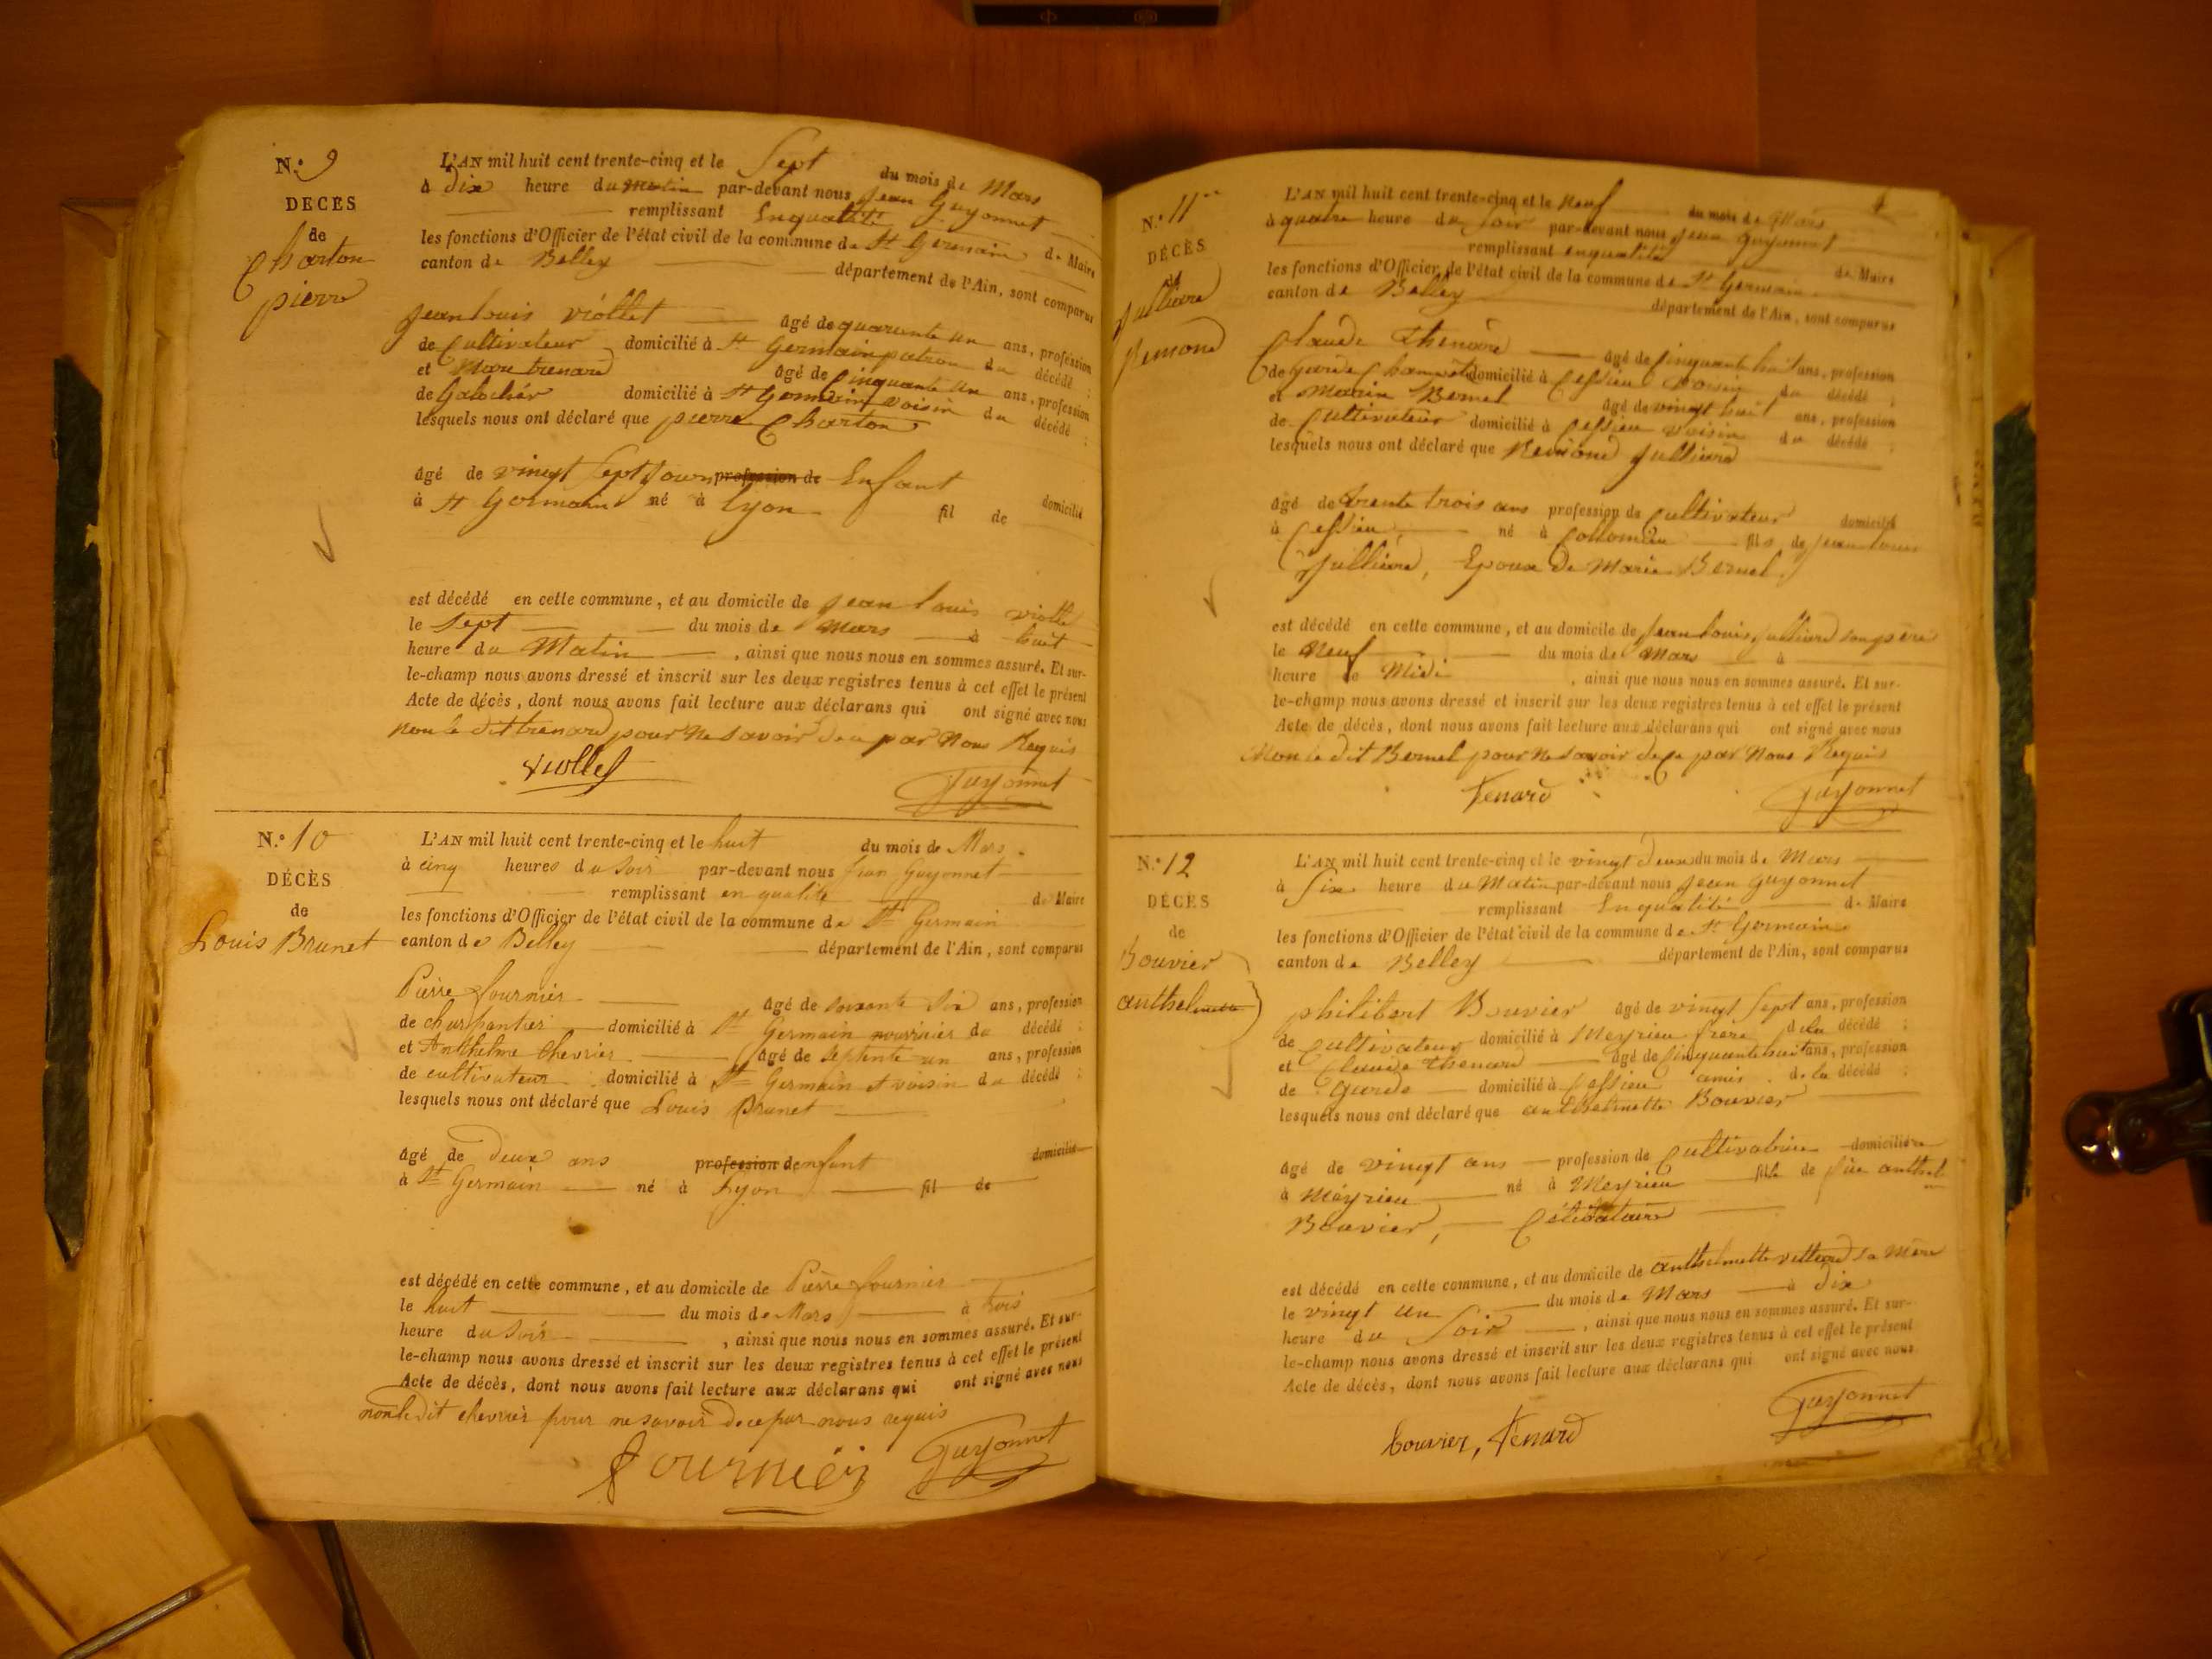 N.° 9
DÉCÈS
de
Charton
pierre
L'AN mil huit cent trente-cinq et le Sept du mois de Mars
à Dix heure du Matin par-devant nous Jean Guyonnet
remplissant Enqualité de Maire
les fonctions d'Officier de l'état civil de la commune de St Germain
canton de Belley département de l'Ain, sont comparus
Jean Louis viollet âgé de quarante un ans, profession
de Cultivateur domicilié à St Germain patron du décédé ;
et Marc trenard âgé de Cinquante un ans, profession
de Galochér domicilié à St Germain voisin du décédé ;
lesquels nous ont déclaré que pierre Charton
âgé de vingt Sept Jours profession de Enfant domicilié
à St Germain né à Lyon fil de
est décédé en cette commune, et au domicile de Jean Louis viollet
le Sept du mois de Mars à huit
heure du Matin , ainsi que nous nous en sommes assuré. Et sur-
le-champ nous avons dressé et inscrit sur les deux registres tenus à cet effet le présent
Acte de décès, dont nous avons fait lecture aux déclarans qui ont signé avec nous
non le dit trenard pour ne savoir de ce par Nous Requis
viollet Guyonnet
N.° 10
DÉCÈS
de
Louis Brunet
L'AN mil huit cent trente-cinq et le huit du mois de Mars
à cinq heures du Soir par-devant nous Jean Guyonnet
remplissant en qualité de Maire
les fonctions d'Officier de l'état civil de la commune de St Germain
canton de Belley département de l'Ain, sont comparus
Pierre fournier âgé de soixante Six ans, profession
de charpantier domicilié à St Germain nourricier du décédé ;
et Anthelme Chevrier âgé de Septente un ans, profession
de cultivateur domicilié à St Germain et voisin du décédé ;
lesquels nous ont déclaré que Louis Brunet
âgé de Deux ans profession de enfant domicilié
à St Germain né à Lyon fil de
est décédé en cette commune, et au domicile de Pierre fournier
le huit du mois de Mars à trois
heure du Soir , ainsi que nous nous en sommes assuré. Et sur-
le-champ nous avons dressé et inscrit sur les deux registres tenus à cet effet le présent
Acte de décès, dont nous avons fait lecture aux déclarans qui ont signé avec nous
non le dit chevrier pour ne savoir de ce par nous requis
fournier Guyonnet
N.° 11
DÉCÈS
de
Julliard
Remond
L'AN mil huit cent trente-cinq et le Neuf du mois de Mars
à quatre heure du Soir par-devant nous Jean Guyonnet
remplissant enqualité de Maire
les fonctions d'Officier de l'état civil de la commune de St Germain
canton de Belley département de l'Ain, sont comparus
Claude Thenard âgé de Cinquante huit ans, profession
de Garde Champêtre domicilié à Cessieu voisin du décédé ;
et Marin Bernel âgé de vingt huit ans, profession
de Cultivateur domicilié à Cessieu voisin du décédé ;
lesquels nous ont déclaré que Remond Julliard
âgé de trente trois ans profession de Cultivateur domicilié
à Cessieu né à Collomieu fils de Jean Louis
Julliard, Epoux De Marie Bernel
est décédé en cette commune, et au domicile de Jean Louis Julliard son père
le Neuf du mois de Mars à
heure de Midi , ainsi que nous nous en sommes assuré. Et sur-
le-champ nous avons dressé et inscrit sur les deux registres tenus à cet effet le présent
Acte de décès, dont nous avons fait lecture aux déclarans qui ont signé avec nous
Non le dit Bernel pour ne savoir de ce par Nous Requis
Tenard Guyonnet
N.° 12
DÉCÈS
de
Bouvier
anthelmette
L'AN mil huit cent trente-cinq et le vingt Deux du mois de Mars
à Six heure du Matin par-devant nous Jean Guyonnet
remplissant Enqualité de Maire
les fonctions d'Officier de l'état civil de la commune de St Germain
canton de Belley département de l'Ain, sont comparus
philibert Bouvier âgé de vingt Sept ans, profession
de Cultivateur domicilié à Meyrieu frere de la décédé ;
et Claude thenard âgé de Cinquante huit ans, profession
de Garde domicilié à Cessieu amis de la décédé ;
lesquels nous ont déclaré que anthelmette Bouvier
âgé de vingt ans profession de Cultivatrice domiciliée
à Meyrieu né à Meyrieu fille de feu anthel
Bouvier, Célibataire
est décédé en cette commune, et au domicile de anthelmette villard sa Mère
le vingt un du mois de Mars à dix
heure du Soir , ainsi que nous nous en sommes assuré. Et sur-
le-champ nous avons dressé et inscrit sur les deux registres tenus à cet effet le présent
Acte de décès, dont nous avons fait lecture aux déclarans qui ont signé avec nous
Guyonnet
bouvier, Tenard